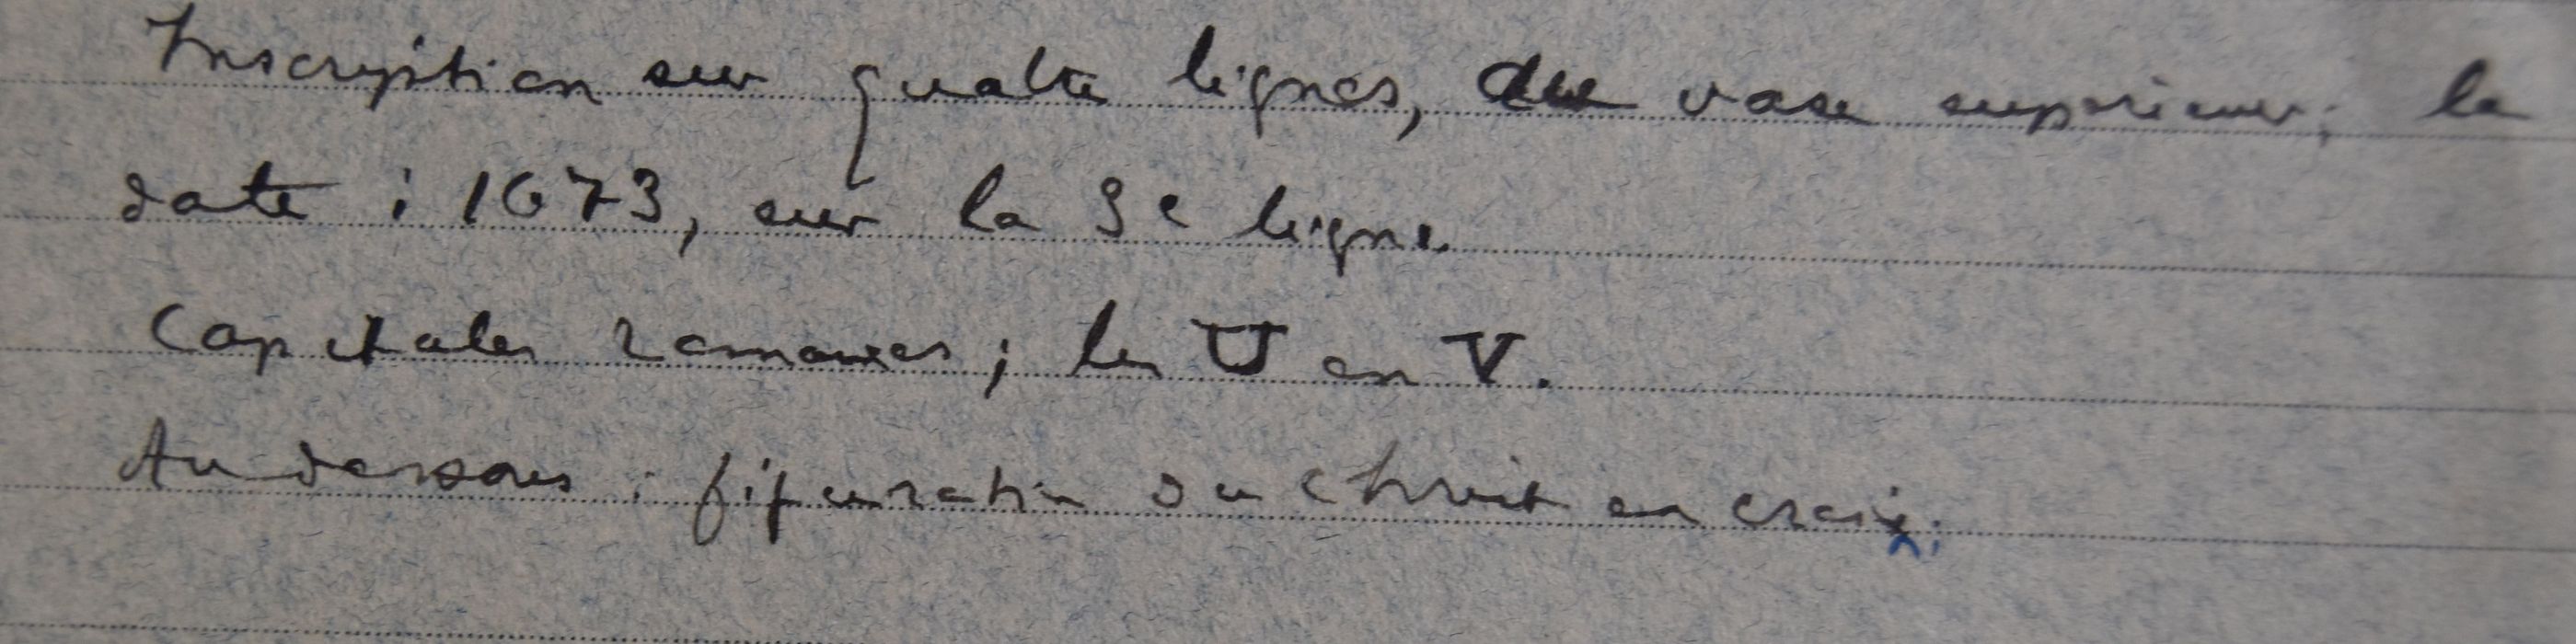 Inscription sur quatre lignes, du vase supérieur ; la
date : 1673, sur la 3e ligne.
Capitales romanes ; les U en V.
Au dessous : figuration du Christ en croix.